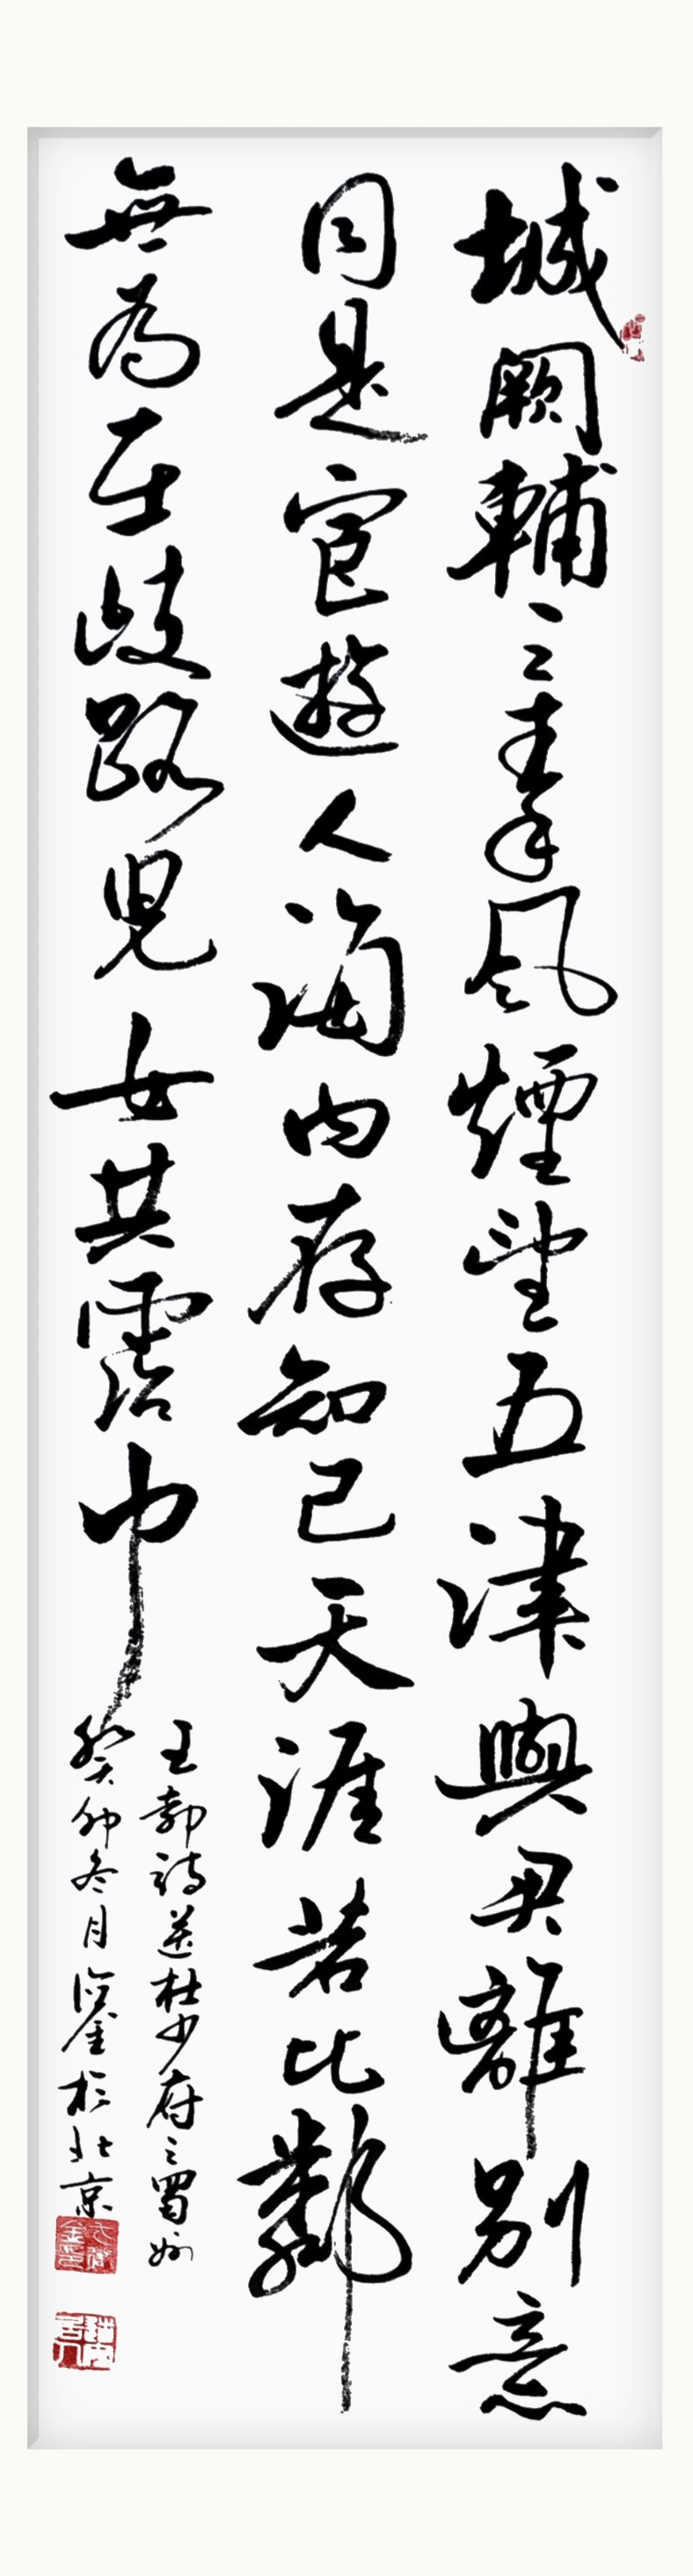 城闕輔三秦風煙望五津與君離別意
同是宦遊人海內存知己天涯若比鄰
無為在歧路兒女共霑巾
王勃詩送杜少府之蜀州
癸卯冬月於北京